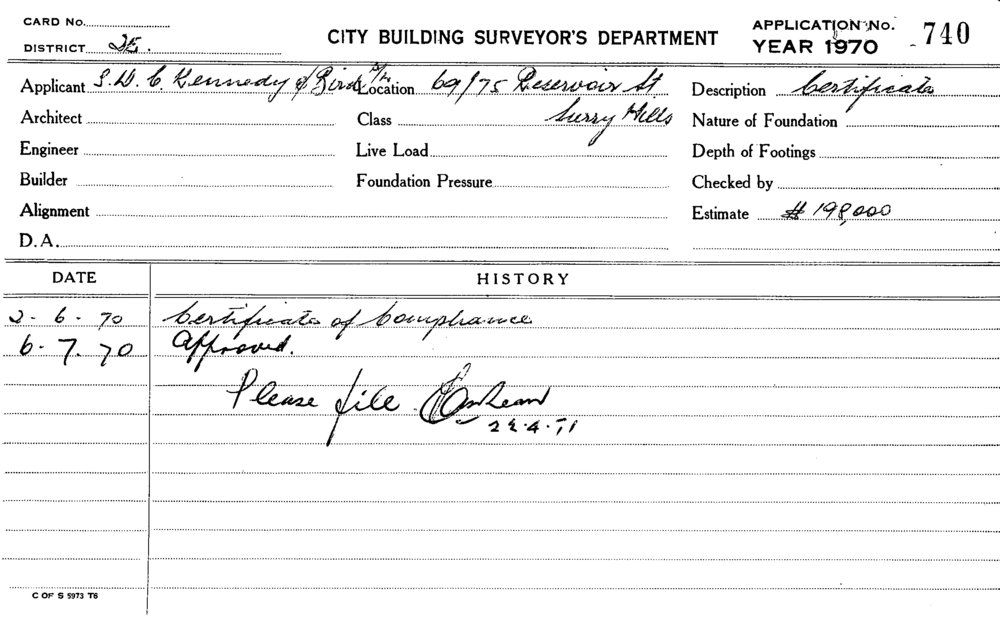 CARD No.
DISTRICT
CITY BUILDING SURVEYOR'S DEPARTMENT
APPLICATION No. 740
YEAR 1970
Applicant S.D.C. Kennedy & Bird P/L Location 69/75 Reservoir St Description Certificate
Architect Class Surry Hills Nature of Foundation
Engineer Live Load Depth of Footings
Builder Foundation Pressure Checked by
Alignment Estimate $ 198,000
D.A.
DATE HISTORY
2-6-70 Certificate of Compliance
6-7.70 Approved.
Please file
4.71
C OF S 5973 T6